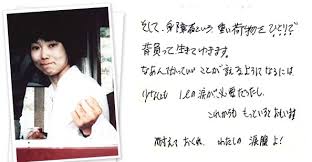 そして、身障者という 重い荷物を ひとりで
背負って 生きてゆきます。
なあんていった ことが言えるようになるには
少なくも 1ℓの涙が必要だったし、
これからも もっといると おもいます
耐えておくれ、わたしの 涙腺よ!